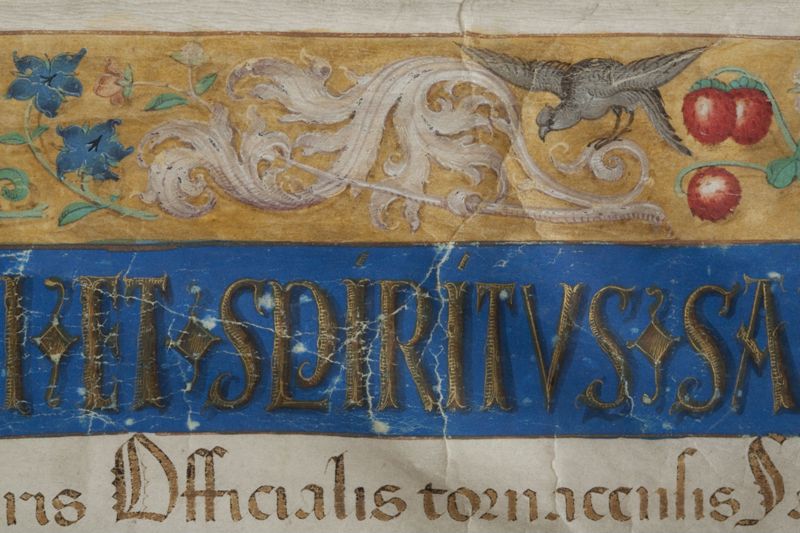 I ET SPIRITVS SA
ris Officialis tornacensis